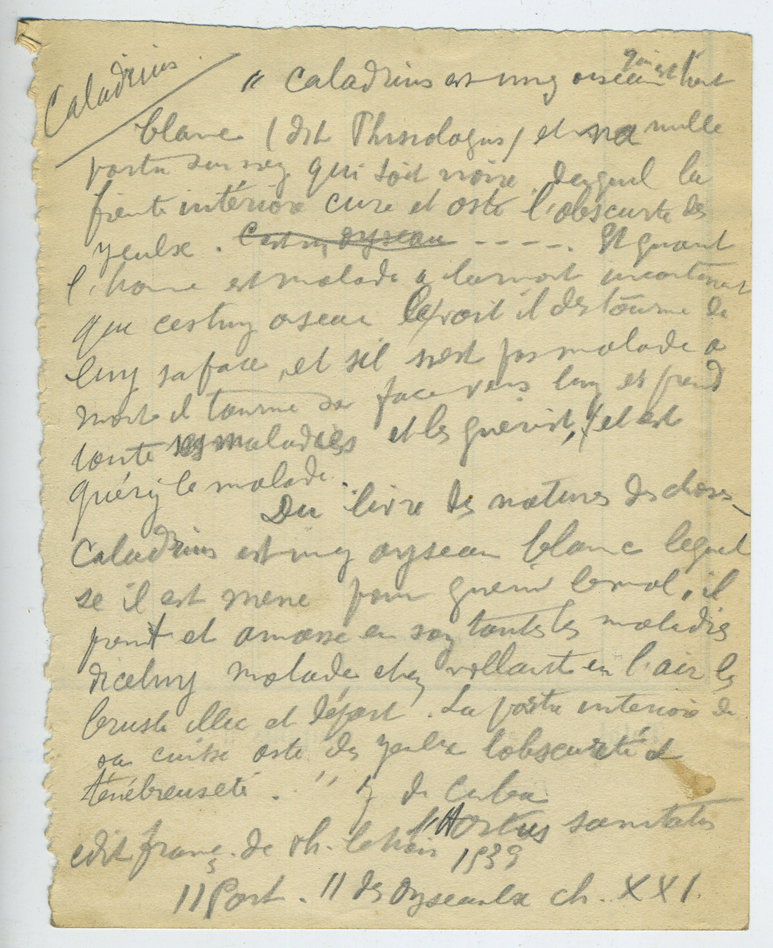 Caladrius.
" Caladrius est ung oiseau qui est tout
blanc (dit Phisiologus) et na nulle
partie sur soy qui soit noire, duquel la
fiente intériore cure et oste l'obscurte des
yeulx. Cest ung oyseau - - - -. Et quant
l'homme est malade a la mort incontinent
que cestuy oiseau le voit il destourne de
luy sa face, et sil nest pas malade a
mort il tourne sa face vers luy et prend
toute ses maladies et les guerist, et est
quéry le malade.
Du livre des natures des choses_
Caladrius est ung oyseau blanc lequel
se il est mene pour guerir le mal, il
prent et amasse en soy toutes les maladies
dicelluy malade et vollant en l'air les
brusle illec et départ. La partie interiore de
sa cuisse oste des yeulx lobscurté et
ténébreuseté. " J. de Cuba
l'Hortus sanitatis
edit franç. de Ph. le Noir 1539
II Part. II des Oyseaulx ch. XXI.